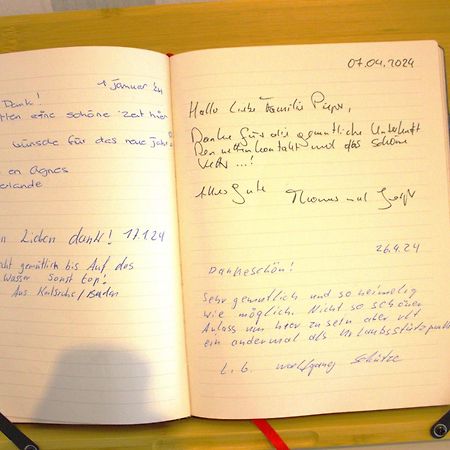 1 Januar 24
Dank!
ten eine schöne Zeit hier
wünsche für das neue Jahr
en Agnes
erlande
n Lieben dank! 17.1.24
cht gemütlich bis Auf das
Wasser sonst top!
Aus Karlsruhe/Baden
07.04.2024
Hallo liebe Familie
Danke für die gemütliche Unterkunft
Den netten Kontakt und das schöne
...!
Alles Gute Thomas und
26.4.24
Dankeschön!
Sehr gemütlich und so heimelig
wie möglich. Nicht so schöner
Anlass um hier zu sein aber vlt
ein andermal als Urlaubsstützpunkt
L.G. Wolfgang Schütze